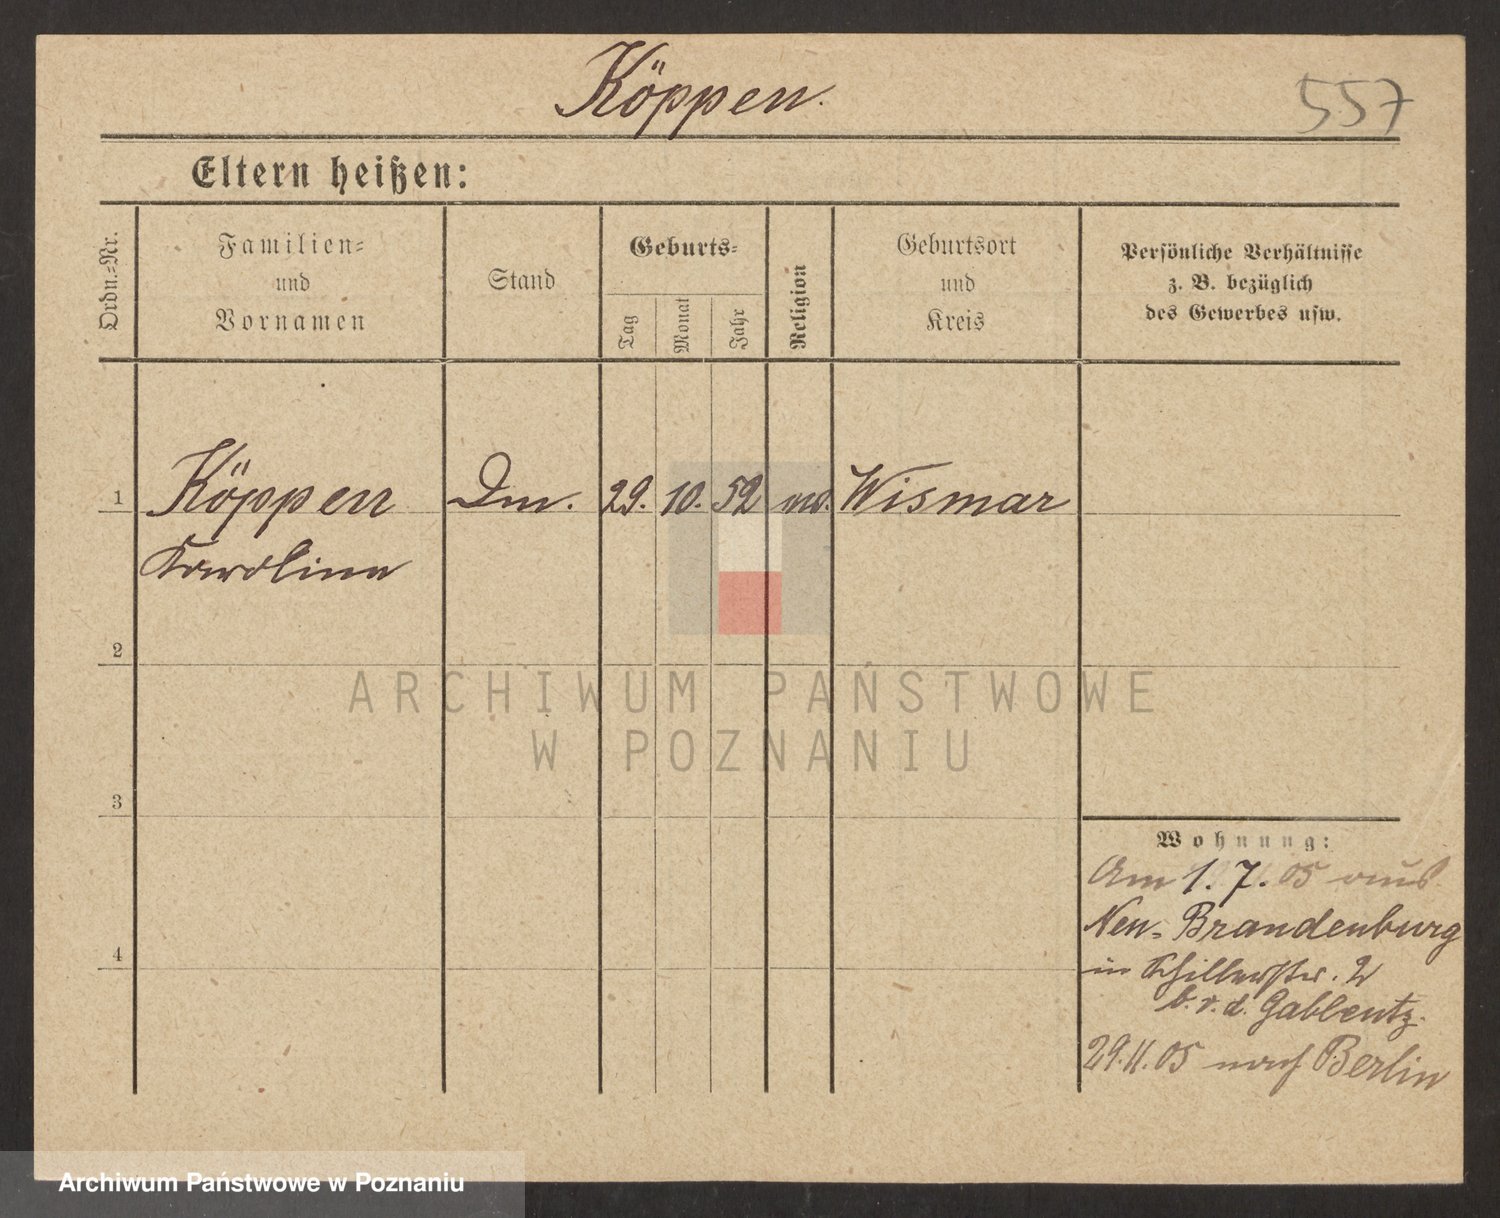 Köppen.
557
Eltern heißen:
Ordn.-Nr.
Familien-
und
Vornamen
Stand
Geburts-
Tag
Monat
Jahr
Religion
Geburtsort
und
Kreis
Persönliche Verhältnisse
z. B. bezüglich
des Gewerbes usw.
1 Köppen 29. 10. 52 Wismar
Karoline
2
ARCHIWUM PAŃSTWOWE
W POZNANIU
3
Wohnung:
Am 1. 7. 05 aus
Neu-Brandenburg
4
in Schillerstr. 2
b. v. d. Gablentz.
29.11.05 nach Berlin
Archiwum Państwowe w Poznaniu